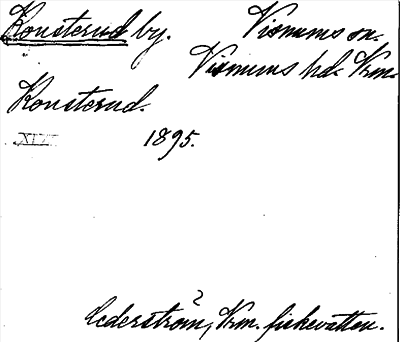 Konsterud by. Visnums sn.
Visnums hd. Vrm.
Konsterud.
XIX 1895.
Cederström, Vrm. fiskevatten.